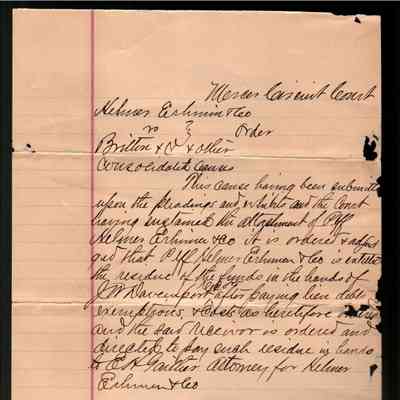 Mercer Circuit Court
Helmer Erhman & Co
vs } Order
Britton & Co & other
Consolidated Causes
This cause having been submitted
upon the pleadings and exhibits and the Court
having sustained the attachment of Plff
Helmer Erhman & Co it is ordered & adjud
ged that Plff Helmer Erhman & Co is entitled
the residue of the funds in the hands of
J W Davenport after paying lien debt
exemptions, & Costs as heretofore
and the said Receiver is ordered and
directed to pay such residue in hands
to E H attorney for Helmer
Erhman & Co